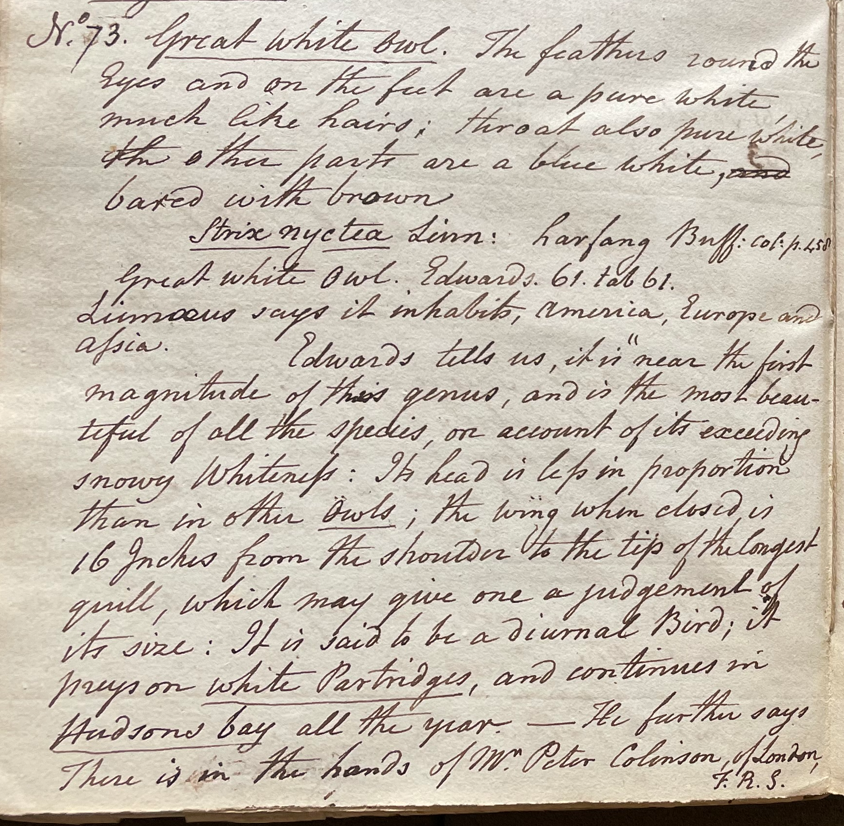 No. 73. Great white Owl. The feathers round the
Eyes and on the feet are a pure white
much like hairs; throat also pure white,
the other parts are a blue white, and
bared with brown
Strix nyctea Linn: harfang Buff: col: p. 458
Great white Owl. Edwards. 61. tab 61.
Linnaeus says it inhabits, America, Europe and
Asia. Edwards tells us, it is "near the first
magnitude of this genus, and is the most beau-
tiful of all the species, on account of its exceeding
snowy Whiteness: Its head is less in proportion
than in other Owls; the wing when closed is
16 Inches from the shoulder to the tip of the longest
quill, which may give one a judgement of
its size: It is said to be a diurnal Bird; it
preys on white Partridges, and continues in
Hudsons bay all the year. — He further says
There is in the hands of Mr Peter Colinson, of London,
F. R. S.